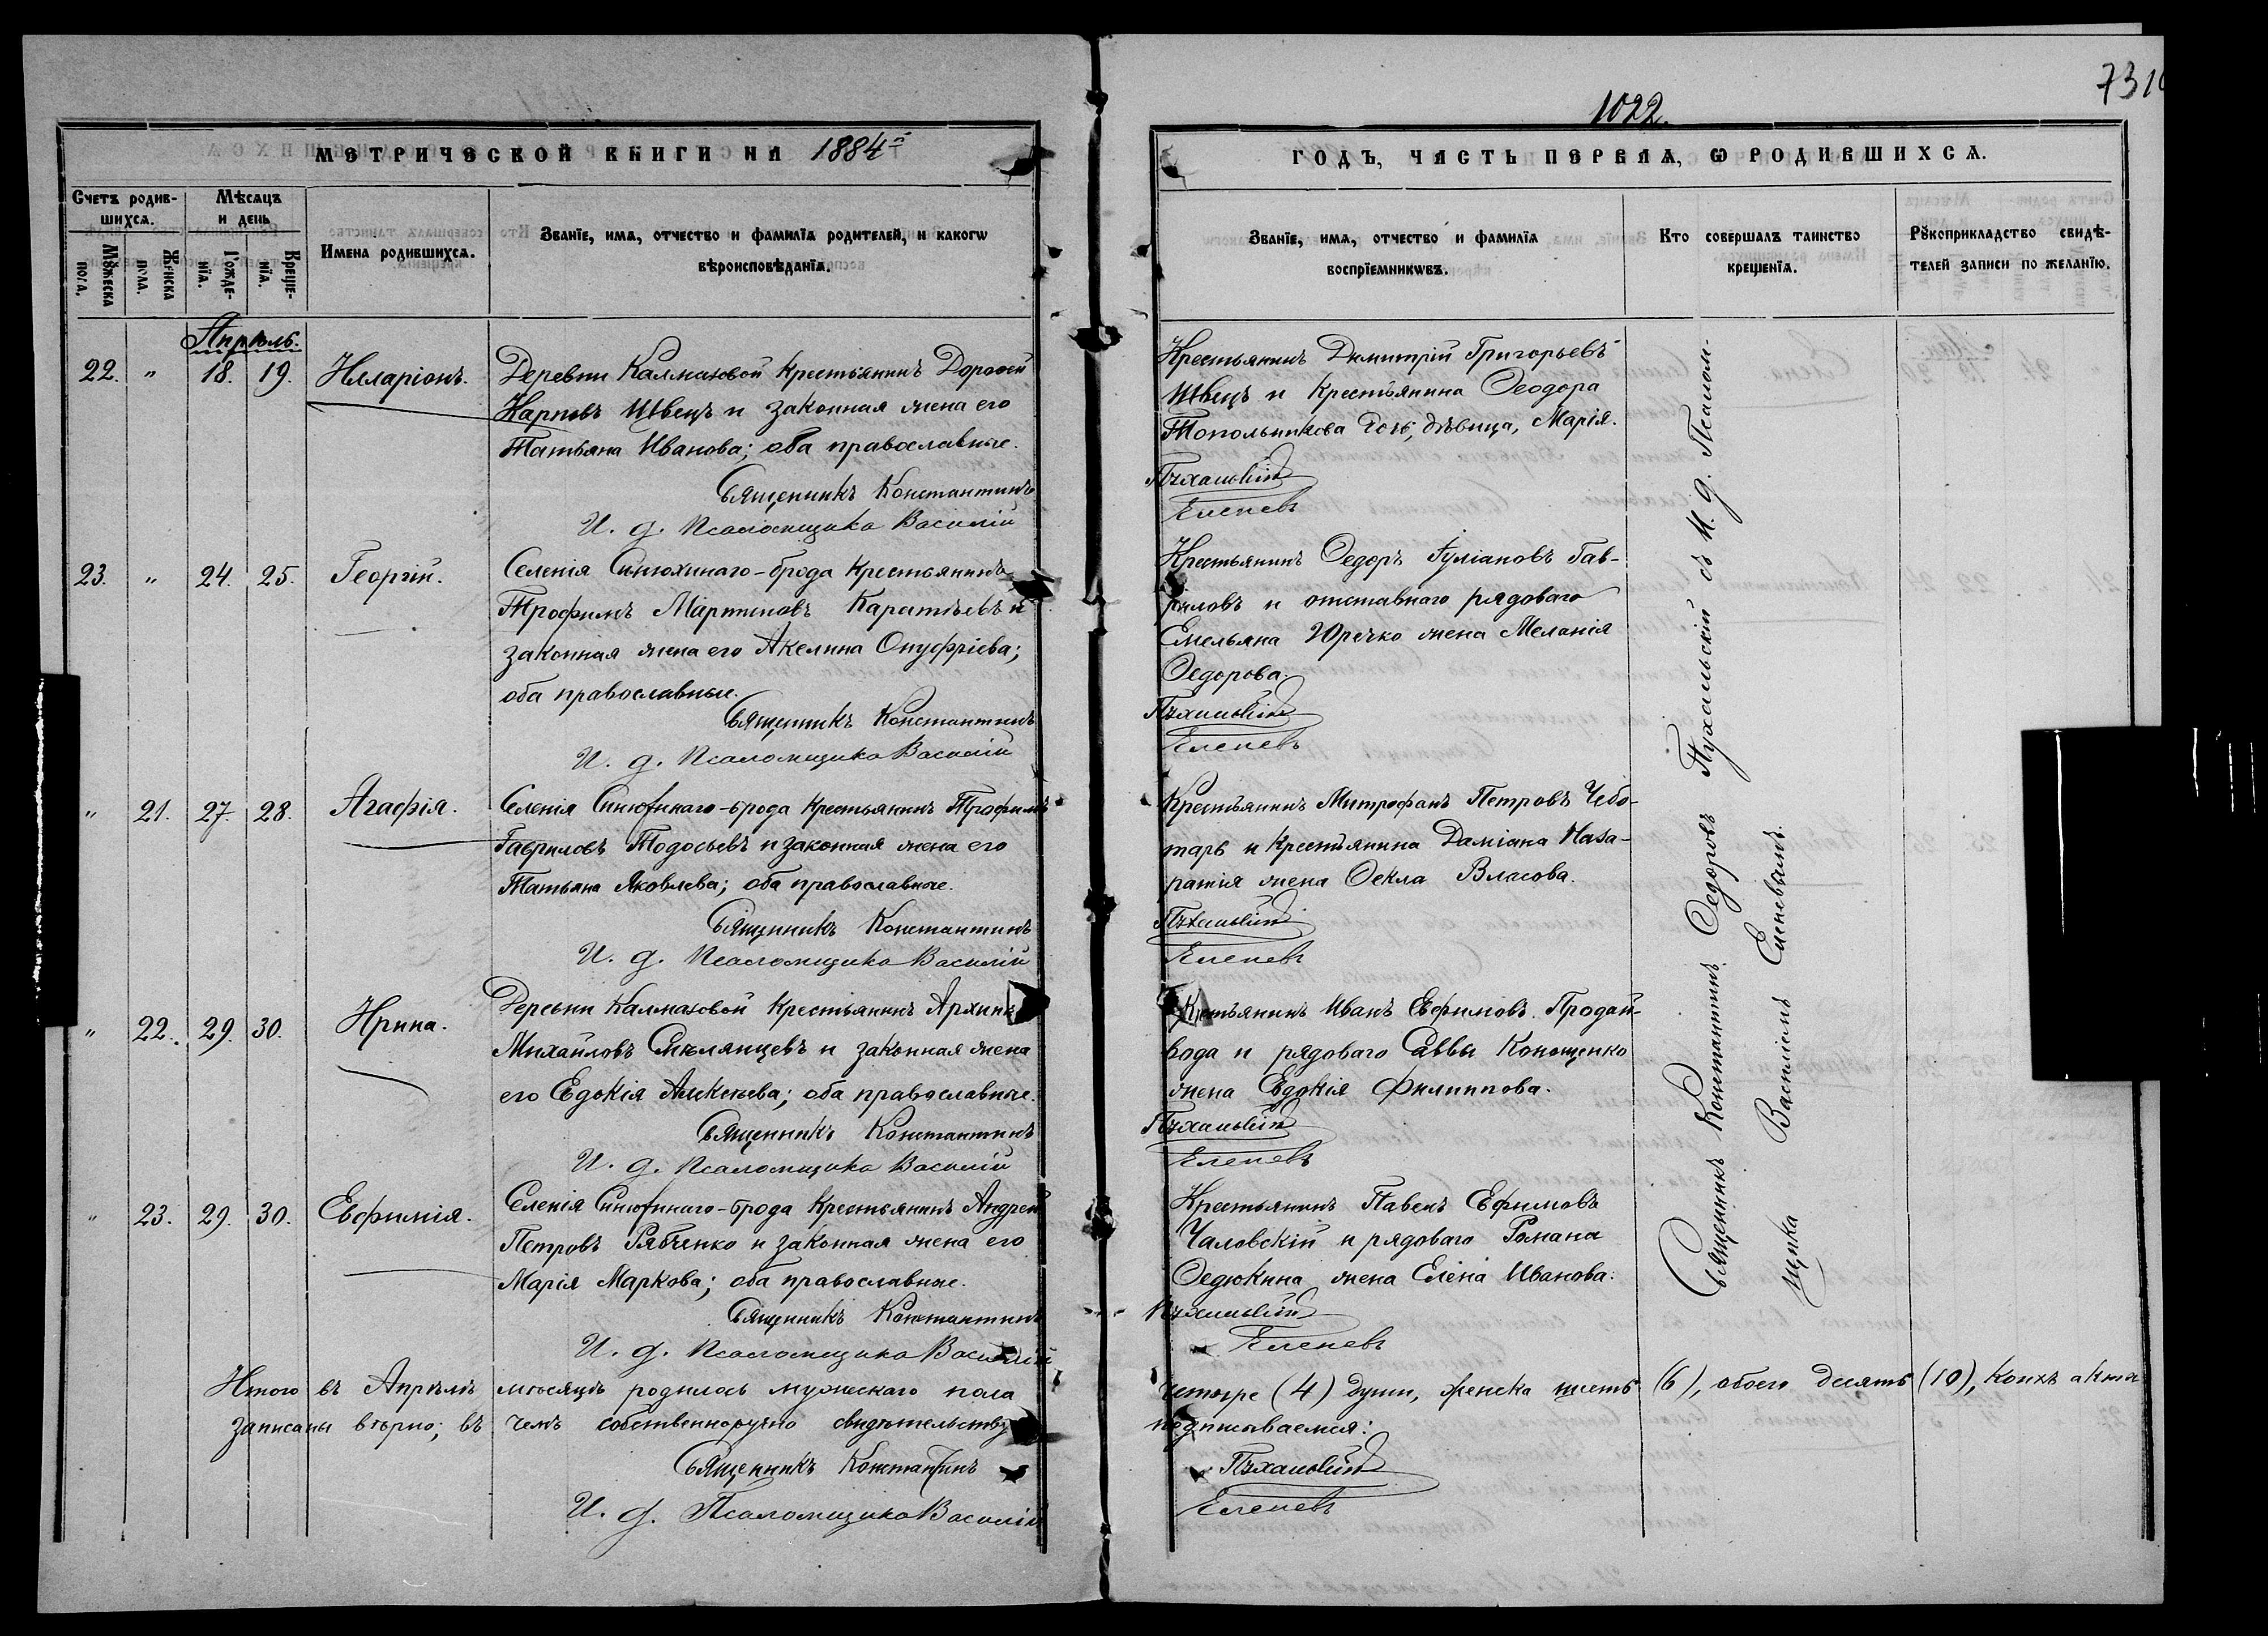 1022.
МЕТРИЧЕСКОЙ КНИГИ НА 1884й
ГОДЪ, ЧАСТЬ ПЕРВАЯ, Ѡ РОДИВШИХСЯ.
Счетъ родив-
шихся.
Мѣсяцъ
и день
Мꙋжеска
пола.
Женска
пола.
Рожде-
нїя.
Креще-
нїя.
Имена родившихся.
Званїе, имя, отчество и фамилїя родителей, и какогѡ
вѣроисповѣданїя.
Званїе, имя, отчество и фамилїя
воспрїемникѡвъ.
Кто совершалъ таинство
крещенїя.
Рꙋкоприкладство свидѣ-
телей записи по желанїю.
Апрѣль.
22. " 18. 19. Илларіонъ.
Деревни Калмазовой крестьянинъ Дорофей
Карповъ Швецъ и законная жена его
Татьяна Иванова; оба православные.
Священникъ Константинъ
И. д. Псаломщика Василій
Крестьянинъ Димитрій Григорьевъ
Швецъ и крестьянина Ѳеодора
Топольникова дочь, дѣвица, Марія.
Пухальскій
Еленевъ
23. " 24. 25. Георгій.
Селенія Синюхинаго-брода крестьянинъ
Трофимъ Мартиновъ и
законная жена его Акелина Онуфріева;
оба православные.
Священникъ Константинъ
И. д. Псаломщика Василій
Крестьянинъ Ѳедоръ Іуліановъ Гав-
риловъ и отставнаго рядоваго
Емельяна Юречко жена Меланія
Ѳедорова.
Пухальскій
Еленевъ
" 21. 27. 28. Агафія.
Селенія Синюхинаго-брода крестьянинъ Трофимъ
Гавриловъ Тодосьевъ и законная жена его
Татьяна Яковлева; оба православные.
Священникъ Константинъ
И. д. Псаломщика Василій
Крестьянинъ Митрофанъ Петровъ Чебо-
тарь и крестьянина Даміана Наза-
ратія жена Ѳекла Власова.
Пухальскій
Еленевъ
" 22. 29. 30. Ирина.
Деревни Калмазовой крестьянинъ Архипъ
Михаиловъ Смѣлянцевъ и законная жена
его Евдокія Алексѣева; оба православные.
Священникъ Константинъ
И. д. Псаломщика Василій
Крестьянинъ Иванъ Ефимовъ Продай-
вода и рядоваго Саввы Конощенко
жена Евдокія Филиппова.
Пухальскій
Еленевъ
" 23. 29. 30. Евфимія.
Селенія Синюхинаго-брода крестьянинъ Андрей
Петровъ Рябченко и законная жена его
Марія Маркова; оба православные.
Священникъ Константинъ
И. д. Псаломщика Василій
Крестьянинъ Павелъ Ефимовъ
Чаловскій и рядоваго Романа
Ѳедюкина жена Елена Иванова.
Пухальскій
Еленевъ
Священникъ Константинъ Ѳедоровъ Пухальскій съ И. д. Псалом-
щика Василіемъ Еленевымъ.
Итого въ Апрѣлѣ мѣсяцѣ родилось мужескаго пола четыре (4) души, женска шесть (6), обоего десять (10), коихъ акты
записаны вѣрно; въ чемъ собственноручно подписываемся:
Священникъ Константинъ Пухальскій
И. д. Псаломщика Василій Еленевъ